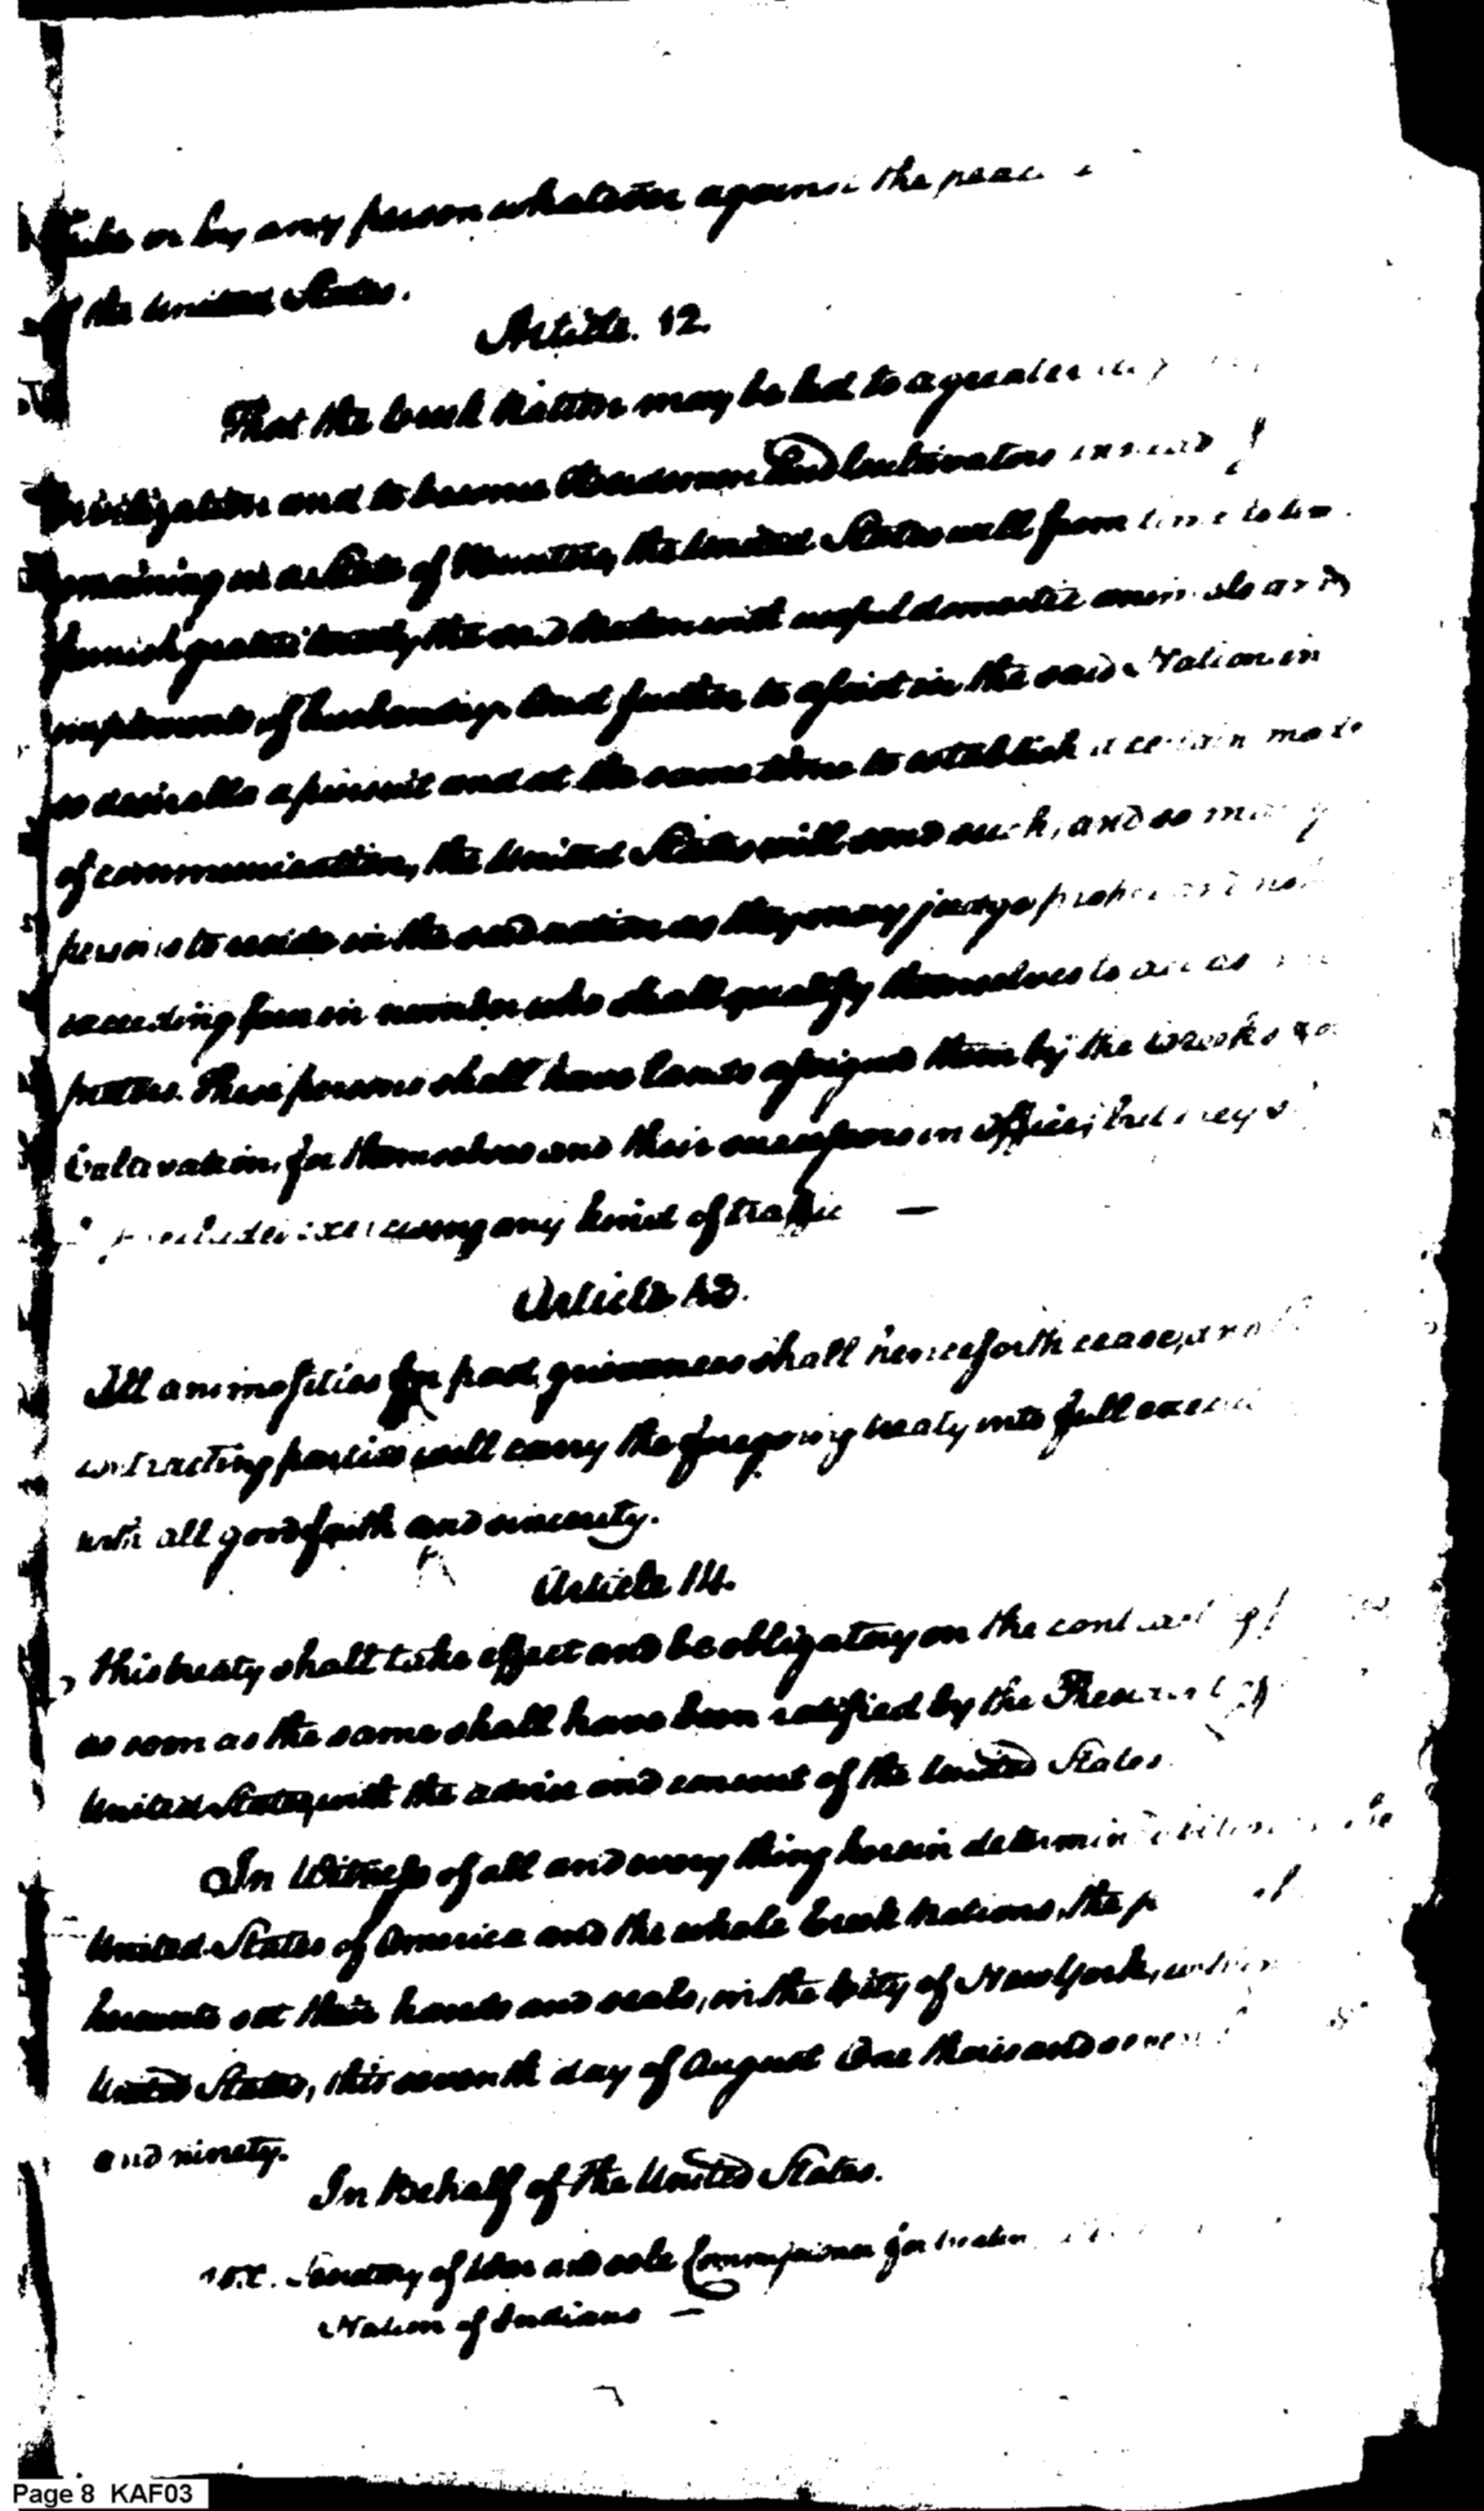 Tribe or by any person whatever against the peace
of the United States.
Article. 12
That the Creek Nation may be led to a greater
Civilization and to become Herdsmen and Cultivators instead of
remaining in a State of Hunters, the United States will from time to time
furnish gratuitously the said Nation with useful domestic animals and
implements of husbandry. And further to assist in the said Nation in
so desirable a pursuit and at the same time to establish a certain mode
of communication, the United States will send such, and so many
persons to reside in the said nation as they may judge proper and not
exceeding four in number who shall qualify themselves to act as
preters. These persons shall have lands assigned them by the Creeks for
Cultivation, for themselves and their successors in office; but they
precluded exercising any kind of traffic —
Article 13.
All animosities for past grievances shall henceforth cease, and
contracting parties will carry the foregoing treaty into full
with all good faith and sincerity.
Article 14.
this treaty shall take effect and be obligatory on the contracting
as soon as the same shall have been ratified by the President of
United States, with the advice and consent of the United States.
In Witness of all and every thing herein determined between the
United States of America and the whole Creek Nations, the
hereunto set their hands and seals, in the City of New York, within
United States, this seventh day of August One thousand seven
and ninety.
In Behalf of the United States.
Secretary of War and sole Commissioner for treating
Nation of Indians —
Page 8 KAF03